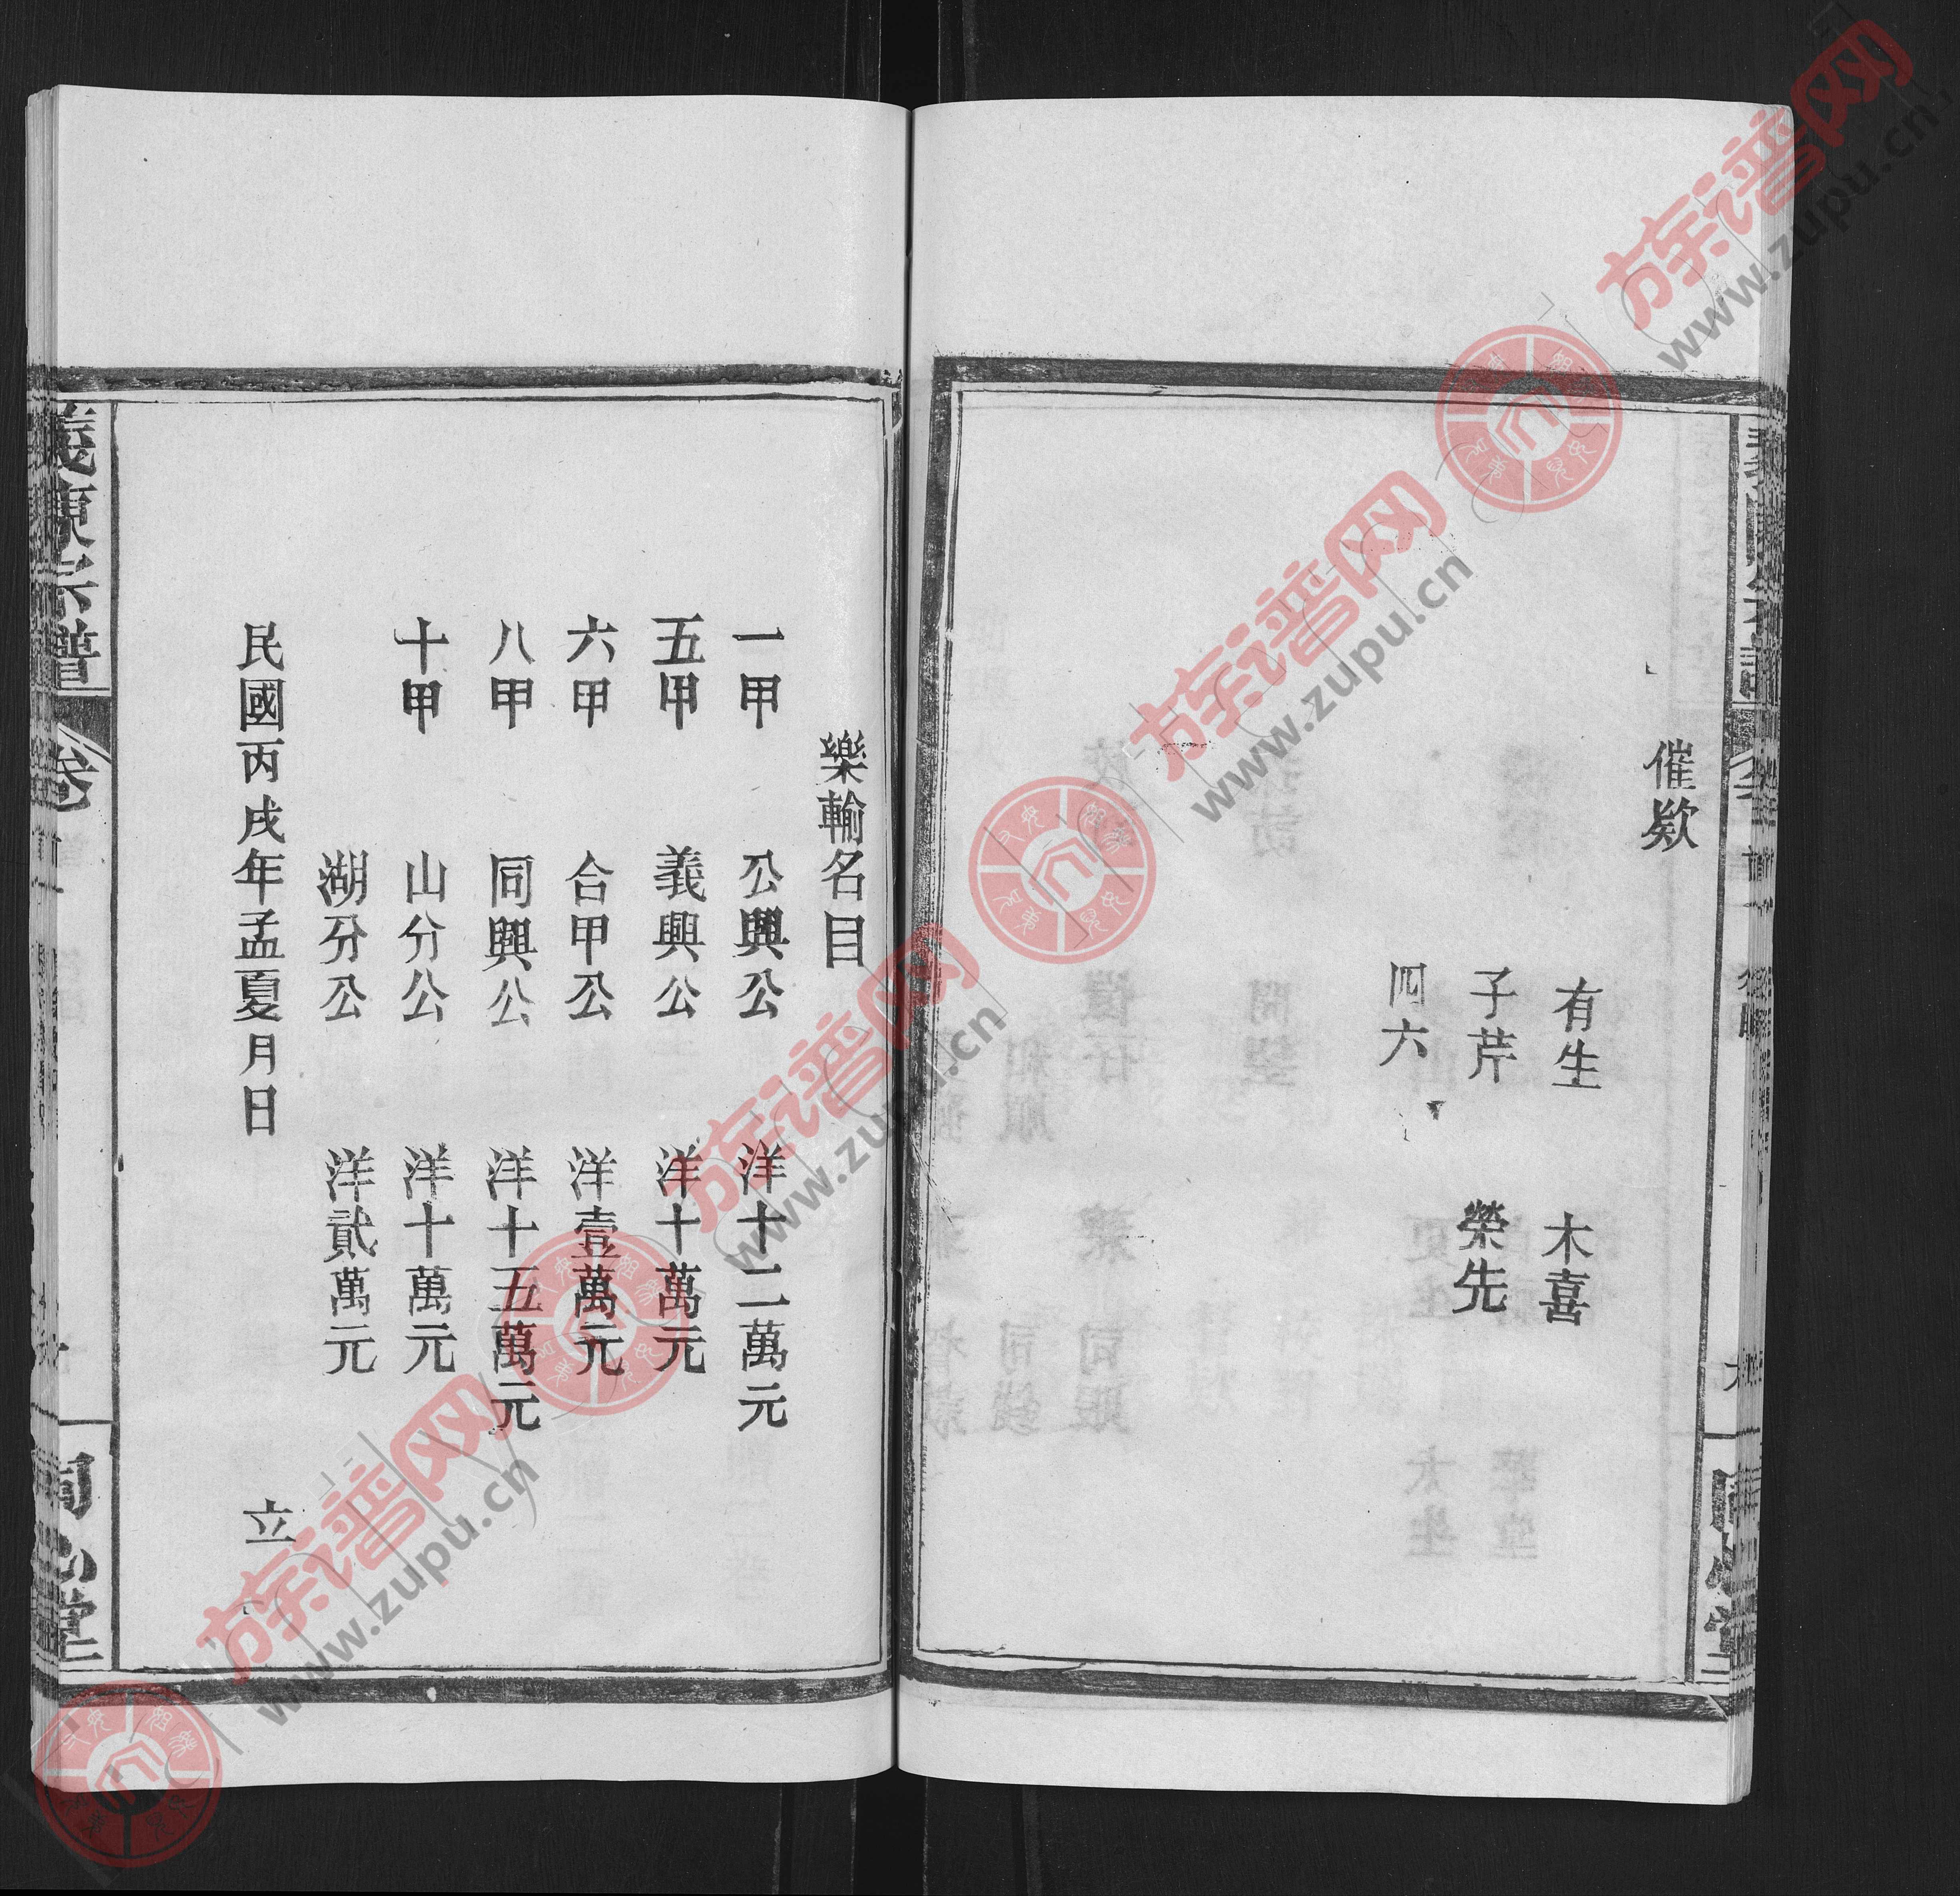 催欵
有生 木喜
子芹 榮先
四六
樂輸名目
一甲 公興公 洋十二萬元
五甲 義興公 洋十萬元
六甲 合甲公 洋壹萬元
八甲 同興公 洋十五萬元
十甲 山分公 洋十萬元
湖分公 洋貳萬元
民國丙戌年孟夏月日 立
宗譜
卷
心堂
族谱网
www.zupu.cn
族谱网
www.zupu.cn
族谱网
www.zupu.cn
族谱网
www.zupu.cn